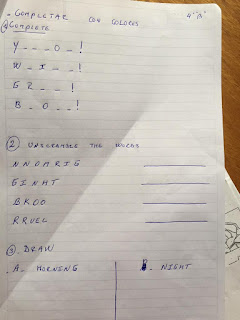 - COMPLETAR CON COLORES 4° "A"
① COMPLETE
Y _ _ _ O _ !
W _ I _ _ !
G R _ _ !
B _ O _ _ !
② UNSCRAMBLE THE WORDS
N N O M R I G
G I N H T
B K O O
R R U E L
③ DRAW
A. MORNING B. NIGHT